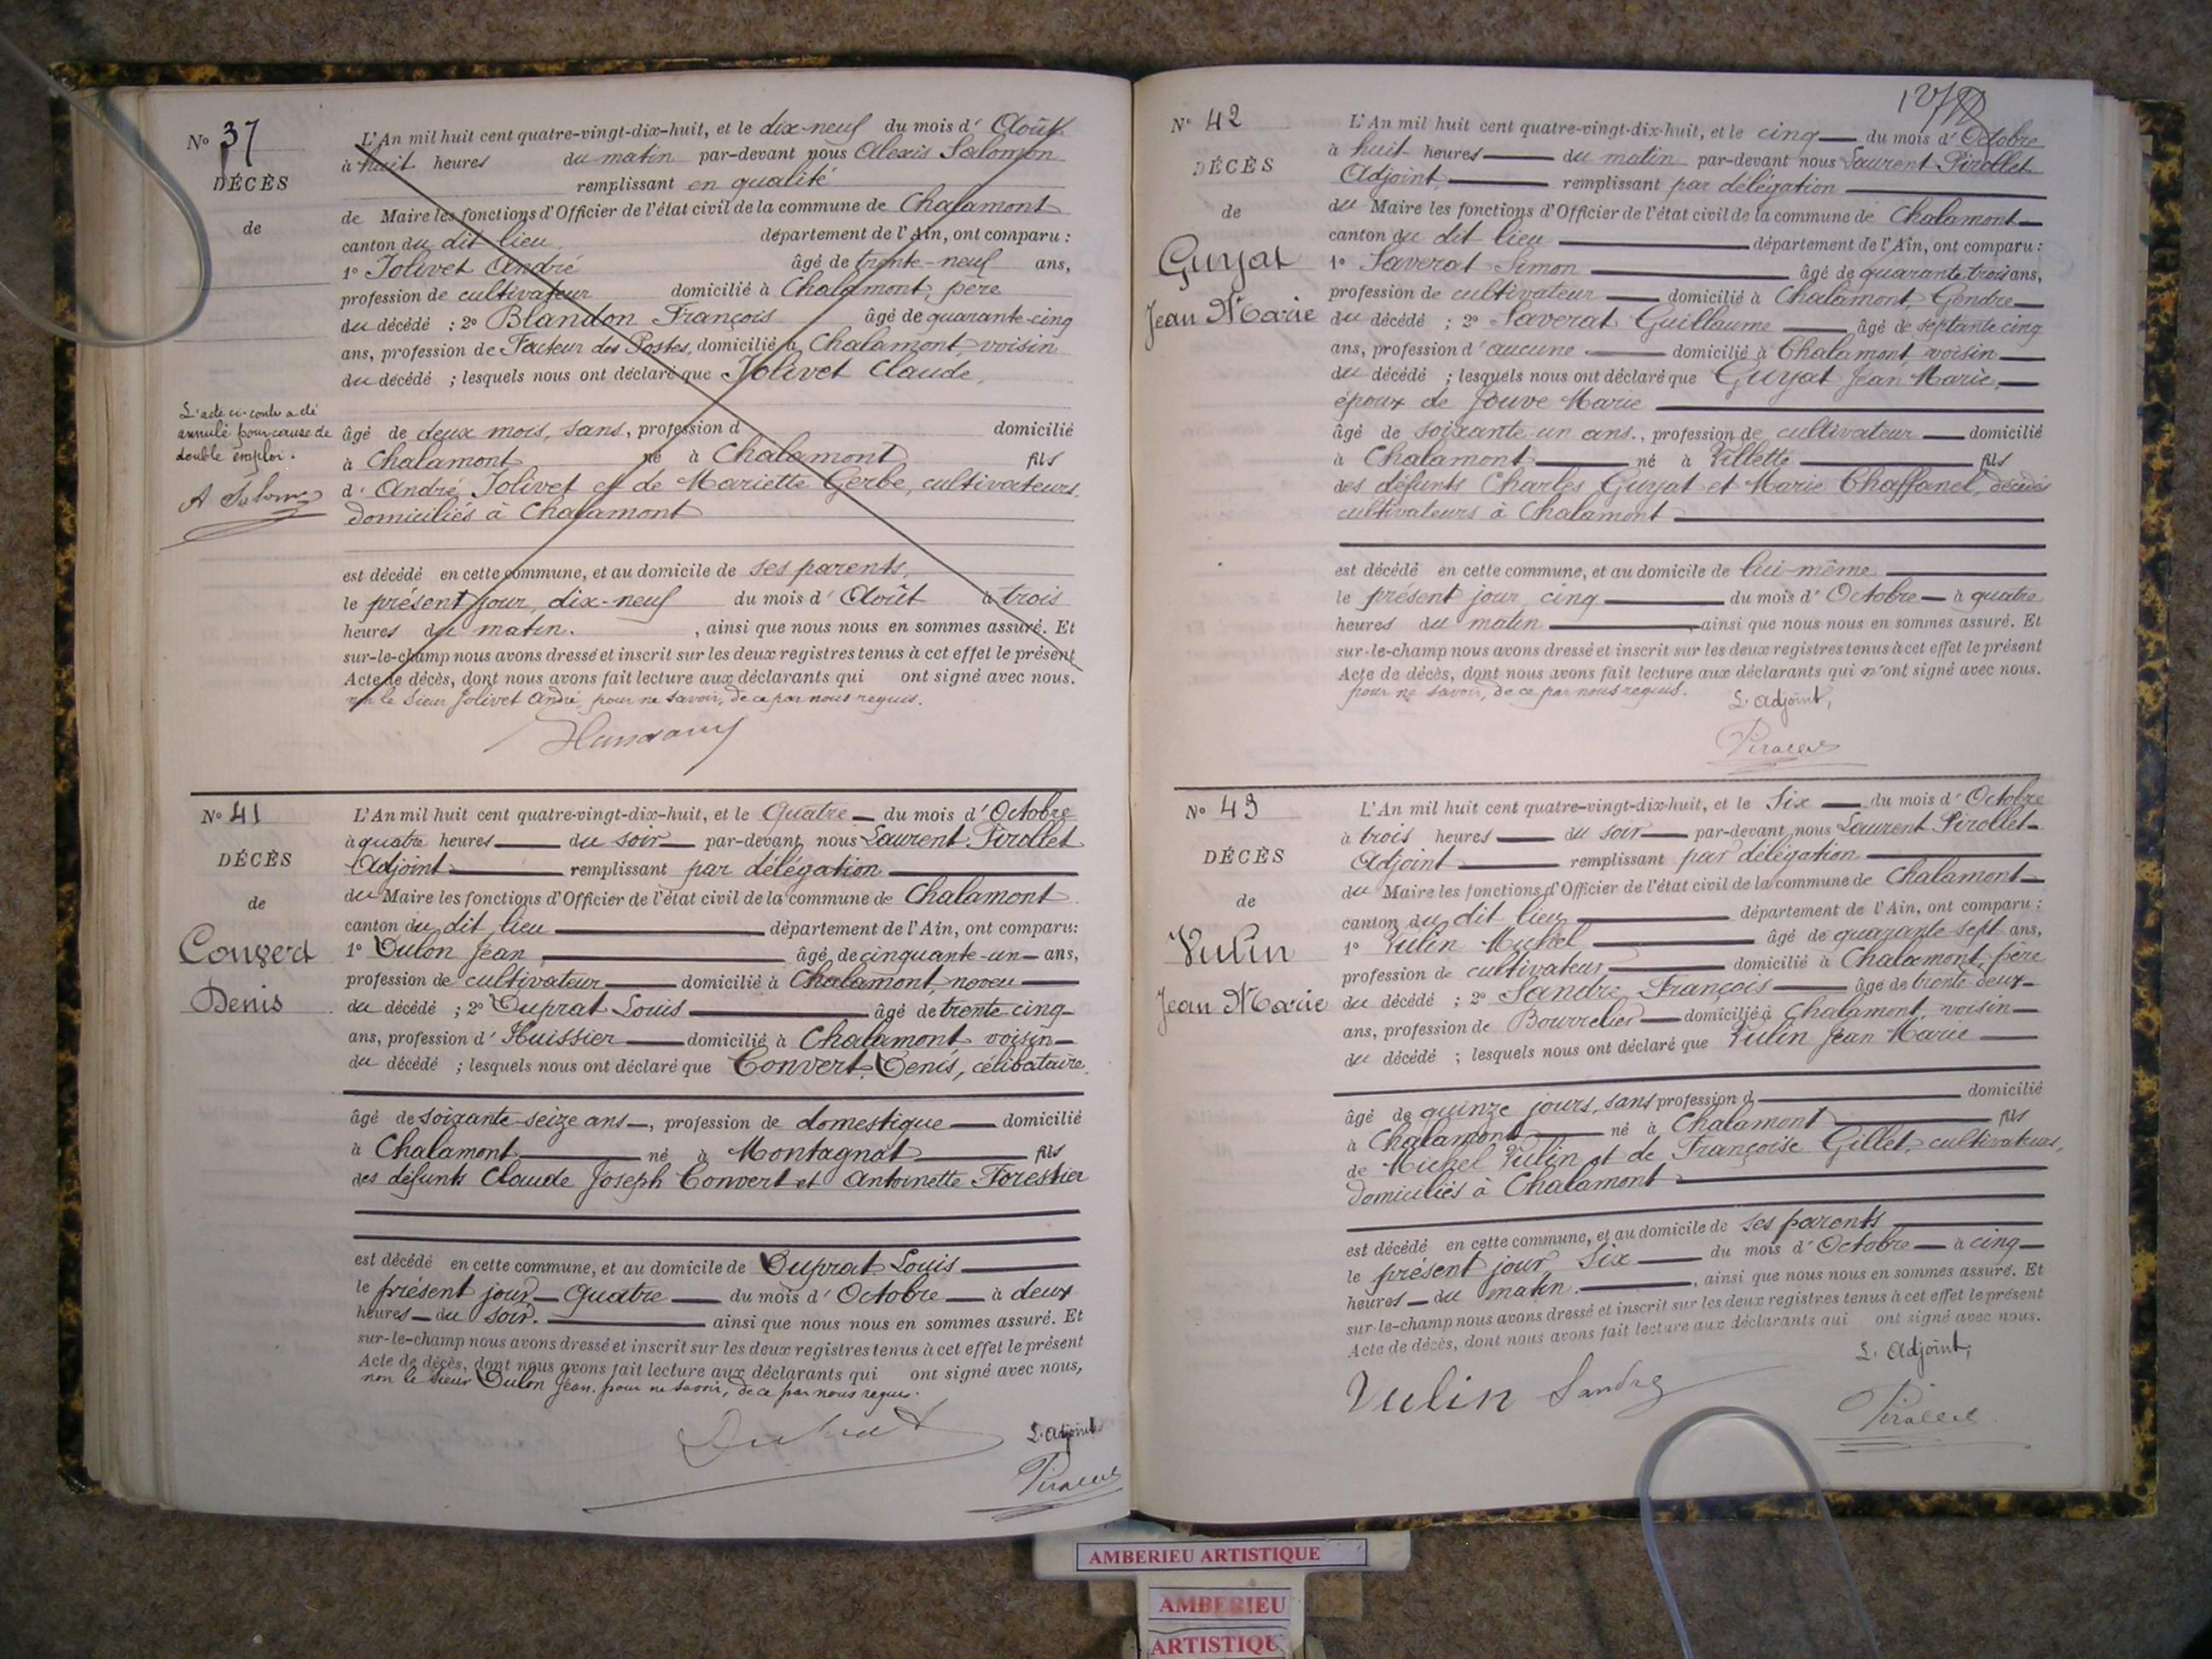 N° 37
DÉCÈS
de
L'acte ci-contre a été
annulé pour cause de
double emploi.
L'An mil huit cent quatre-vingt-dix-huit, et le dix-neuf du mois d'Août
à huit heures du matin par-devant nous Alexis Salomon
remplissant en qualité
de Maire les fonctions d'Officier de l'état civil de la commune de Chalamont
canton du dit lieu département de l'Ain, ont comparu :
1° Jolivet André âgé de trente-neuf ans,
profession de cultivateur domicilié à Chalamont, père
du décédé ; 2° Blandon François âgé de quarante-cinq
ans, profession de Facteur des Postes, domicilié à Chalamont, voisin
du décédé ; lesquels nous ont déclaré que Jolivet Claude,
âgé de deux mois, sans, profession d domicilié
à Chalamont né à Chalamont fils
d'André Jolivet et de Mariette Gerbe, cultivateurs,
domiciliés à Chalamont
est décédé en cette commune, et au domicile de ses parents,
le présent jour, dix-neuf du mois d'Août à trois
heures du matin. , ainsi que nous nous en sommes assuré. Et
sur-le-champ nous avons dressé et inscrit sur les deux registres tenus à cet effet le présent
Acte de décès, dont nous avons fait lecture aux déclarants qui ont signé avec nous.
non le Sieur Jolivet André, pour ne savoir, de ce par nous requis.
N° 41
DÉCÈS
de
Convert
Denis
L'An mil huit cent quatre-vingt-dix-huit, et le Quatre du mois d'Octobre
à quatre heures du soir par-devant nous Laurent Pirollet
Adjoint remplissant par délégation
du Maire les fonctions d'Officier de l'état civil de la commune de Chalamont
canton du dit lieu département de l'Ain, ont comparu :
1° Dulon Jean âgé de cinquante-un ans,
profession de cultivateur domicilié à Chalamont, neveu
du décédé ; 2° Duprat Louis âgé de trente-cinq
ans, profession d'Huissier domicilié à Chalamont, voisin
du décédé ; lesquels nous ont déclaré que Convert Denis, célibataire.
âgé de soixante-seize ans, profession de domestique domicilié
à Chalamont né à Montagnat fils
des défunts Claude Joseph Convert et Antoinette Forestier
est décédé en cette commune, et au domicile de Duprat Louis
le présent jour Quatre du mois d'Octobre à deux
heures du soir. ainsi que nous nous en sommes assuré. Et
sur-le-champ nous avons dressé et inscrit sur les deux registres tenus à cet effet le présent
Acte de décès, dont nous avons fait lecture aux déclarants qui ont signé avec nous,
non le sieur Dulon Jean. pour ne savoir, de ce par nous requis.
Duprat
L'adjoint
N° 42
DÉCÈS
de
Guyat
Jean Marie
L'An mil huit cent quatre-vingt-dix-huit, et le cinq du mois d'Octobre
à huit heures du matin par-devant nous Laurent Pirollet
Adjoint, remplissant par délégation
du Maire les fonctions d'Officier de l'état civil de la commune de Chalamont
canton du dit lieu département de l'Ain, ont comparu :
1° Saverat Simon âgé de quarante trois ans,
profession de cultivateur domicilié à Chalamont, Gendre
du décédé ; 2° Saverat Guillaume âgé de septante cinq
ans, profession d'aucune domicilié à Chalamont voisin
du décédé ; lesquels nous ont déclaré que Guyat Jean Marie,
époux de Jouve Marie
âgé de soixante-un ans., profession de cultivateur domicilié
à Chalamont né à Villette fils
des défunts Charles Guyat et Marie Chaffanel, décédés
cultivateurs à Chalamont
est décédé en cette commune, et au domicile de lui-même
le présent jour cinq du mois d'Octobre à quatre
heures du matin , ainsi que nous nous en sommes assuré. Et
sur-le-champ nous avons dressé et inscrit sur les deux registres tenus à cet effet le présent
Acte de décès, dont nous avons fait lecture aux déclarants qui n'ont signé avec nous.
pour ne savoir, de ce par nous requis.
L'adjoint,
N° 43
DÉCÈS
de
Vulin
Jean Marie
L'An mil huit cent quatre-vingt-dix-huit, et le Six du mois d'Octobre
à trois heures du soir par-devant nous Laurent Pirollet
Adjoint remplissant par délégation
du Maire les fonctions d'Officier de l'état civil de la commune de Chalamont
canton du dit lieu département de l'Ain, ont comparu :
1° Vulin Michel âgé de quarante sept ans,
profession de cultivateur domicilié à Chalamont, père
du décédé ; 2° Sandre François âgé de trente-deux
ans, profession de Bourrelier domicilié à Chalamont, voisin
du décédé ; lesquels nous ont déclaré que Vulin Jean Marie
âgé de quinze jours, sans profession d domicilié
à Chalamont né à Chalamont fils
de Michel Vulin et de Françoise Gillet, cultivateurs,
domiciliés à Chalamont
est décédé en cette commune, et au domicile de ses parents
le présent jour Six du mois d'Octobre à cinq
heures du matin. , ainsi que nous nous en sommes assuré. Et
sur-le-champ nous avons dressé et inscrit sur les deux registres tenus à cet effet le présent
Acte de décès, dont nous avons fait lecture aux déclarants qui ont signé avec nous.
L'Adjoint,
Vulin Sandre
AMBERIEU ARTISTIQUE
AMBERIEU
ARTISTIQU